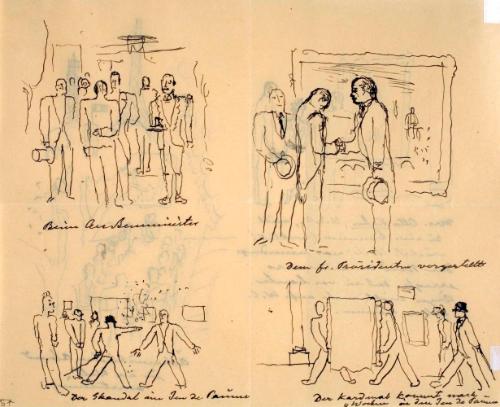 Beim Aussenminister
Dem fr. Präsidenten vorgestellt
Der Skandal im Jeu de Paume
Der Kardinal kommt nach
4 Wochen in den Jeu de Paume